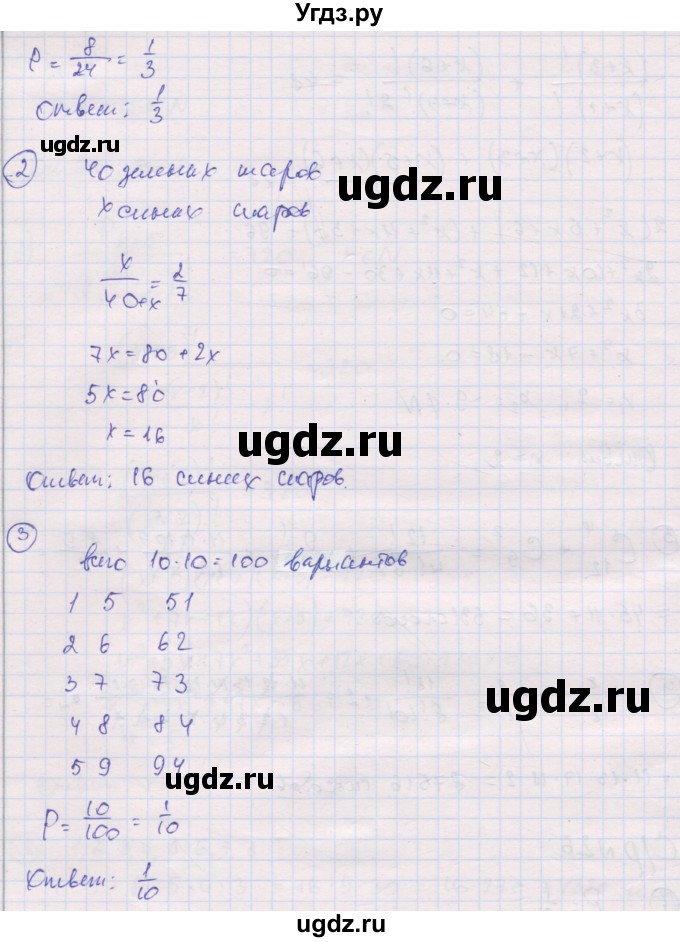 Угдз.ру
P = 8/24 = 1/3
Ответ: 1/3
ugdz.ru
2 40 зеленых шаров
ugdz.ru
x синих шаров
x/(40+x) = 2/7
7x = 80 + 2x
5x = 80
x = 16
ugdz.ru
Ответ: 16 синих шаров.
3
всего 10·10 = 100 вариантов
1 5 51
2 6 62
3 7 73
ugdz.ru
4 8 84
5 9 94
P = 10/100 = 1/10
ugdz.ru
Ответ: 1/10
ugdz.ru